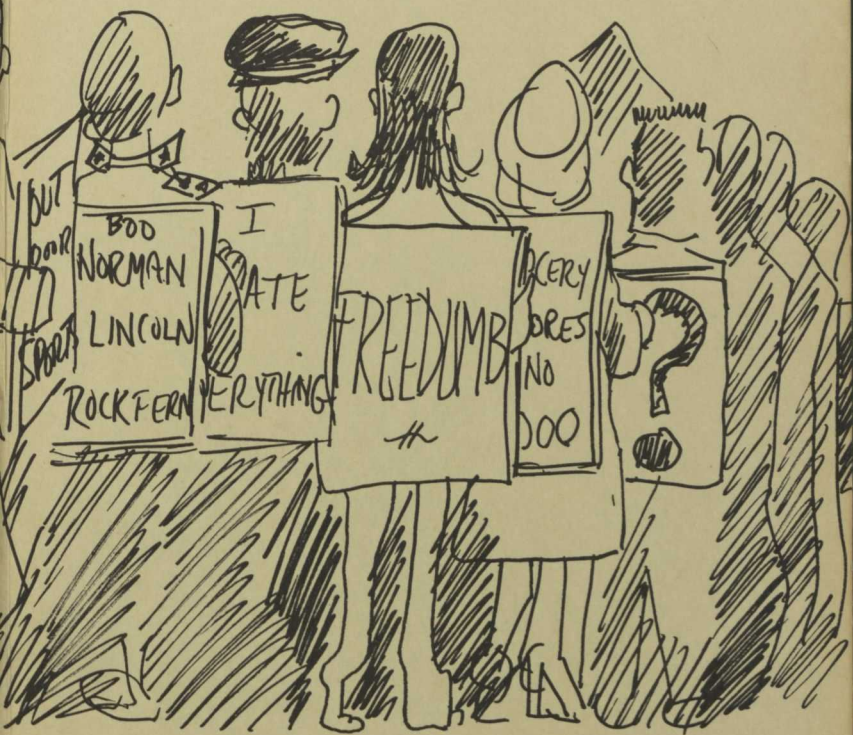 OUT
DOOR
SPORT
BOO
NORMAN
LINCOLN
ROCKFERN
I
ATE
YERYTHING
FREEDUMB
OCERY
ORES
NO
OOO
?